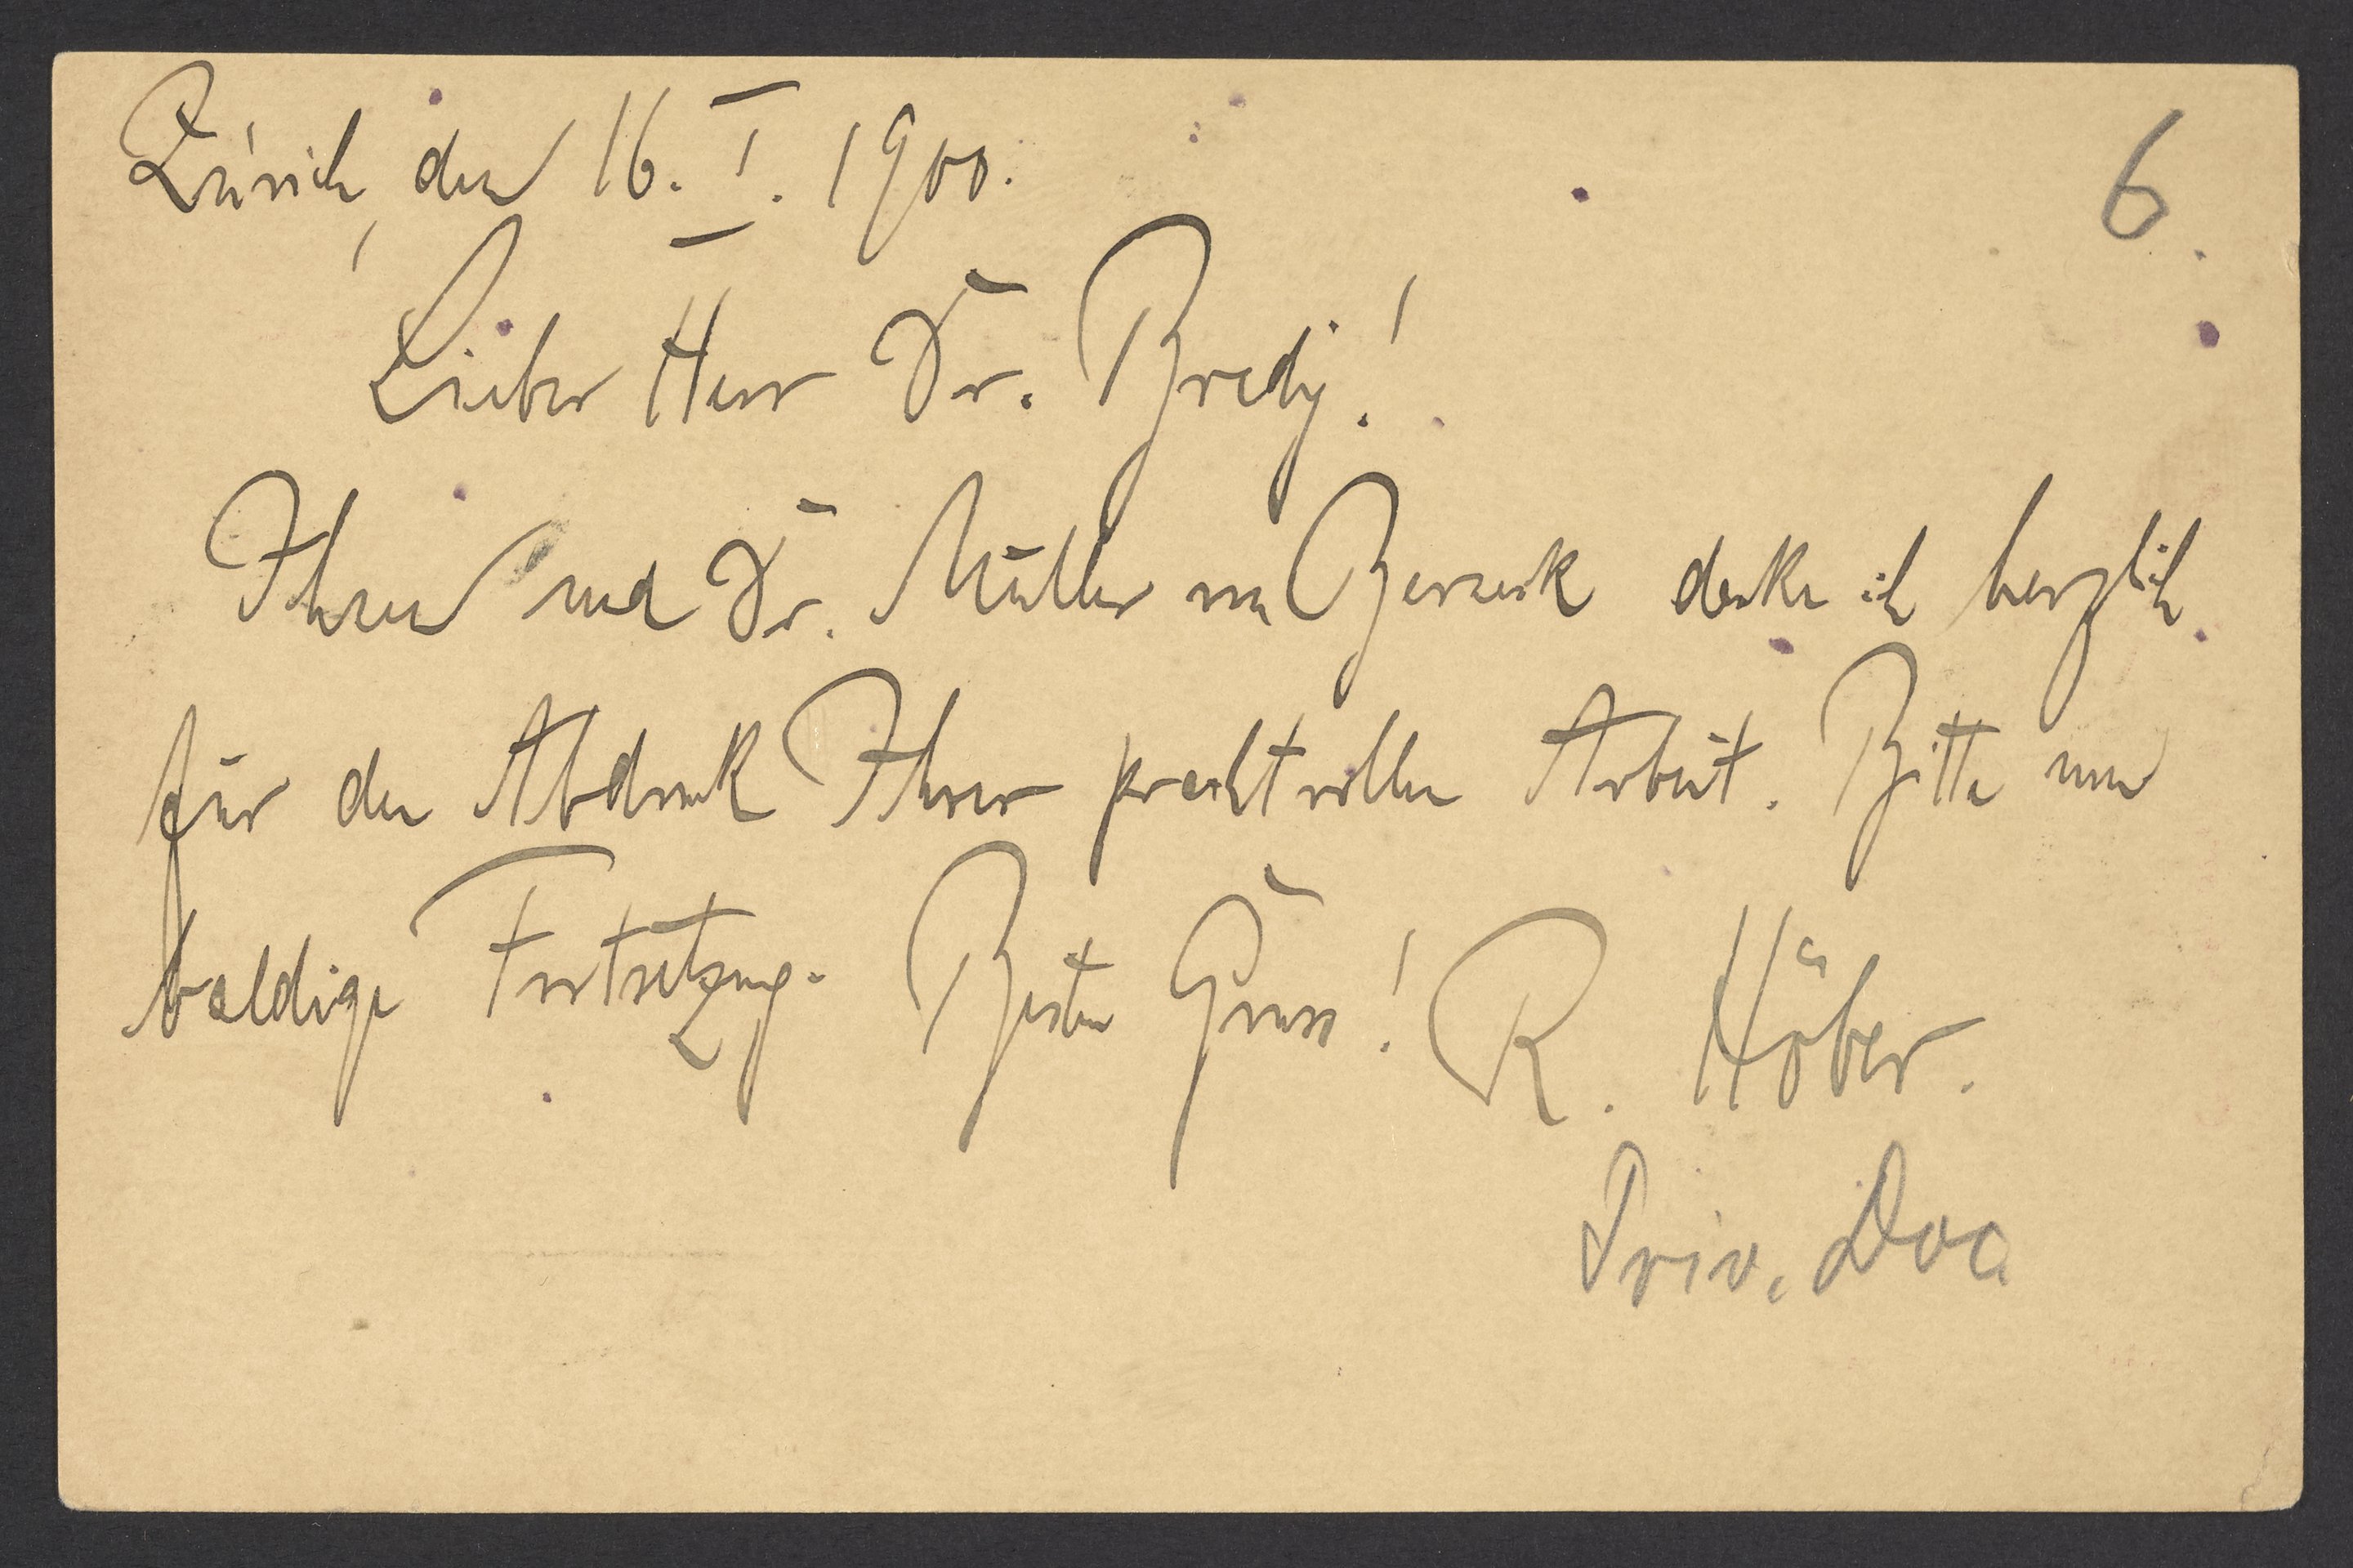 Zürich, den 16. I. 1900.
6.
Lieber Herr Dr. Bredig!
Ihnen und Dr. Müller von Berneck danke ich herzlich
für den Abdruck Ihrer prachtvollen Arbeit. Bitte um
baldige Fortsetzung. Besten Gruss! R. Höber.
Priv. Doc